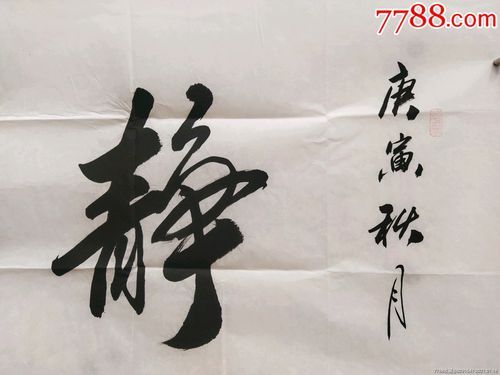 7788.com
庚寅秋月
静